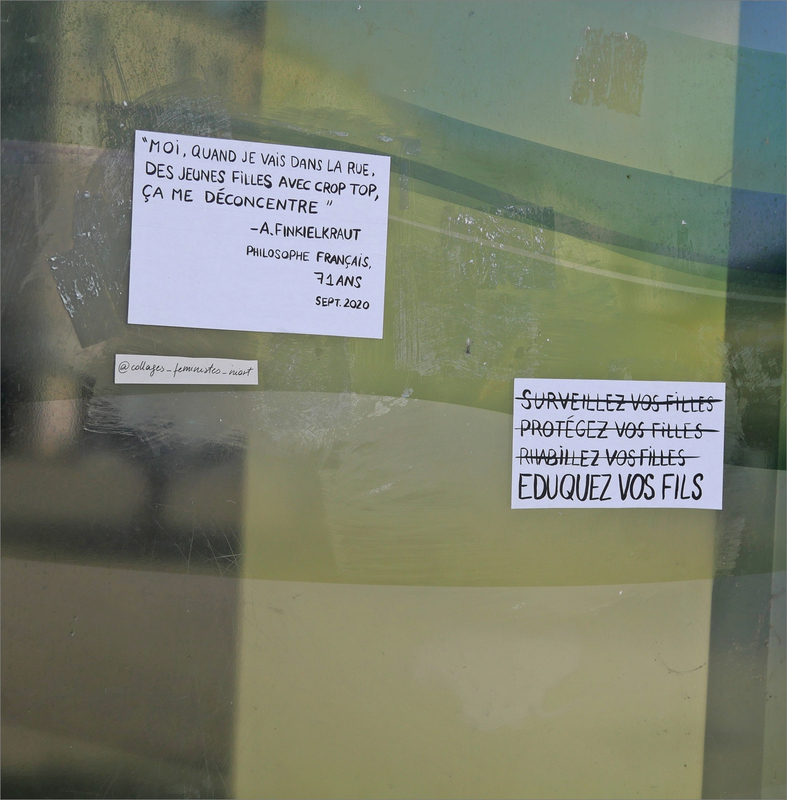 "MOi, QUAND JE VAiS DANS LA RUE,
DES JEUNES FiLLES AVEC CROP TOP,
ÇA ME DÉCONCENTRE "
-A.FINKIELKRAUT
PHILOSOPHE FRANÇAIS,
71ANS
SEPT.2020
@collages_feministes_niort
SURVEILLEZ VOS FiLLES
PROTÉGEZ VOS FiLLES
RHABiLLEZ VOS FiLLES
EDUQUEZ VOS FILS